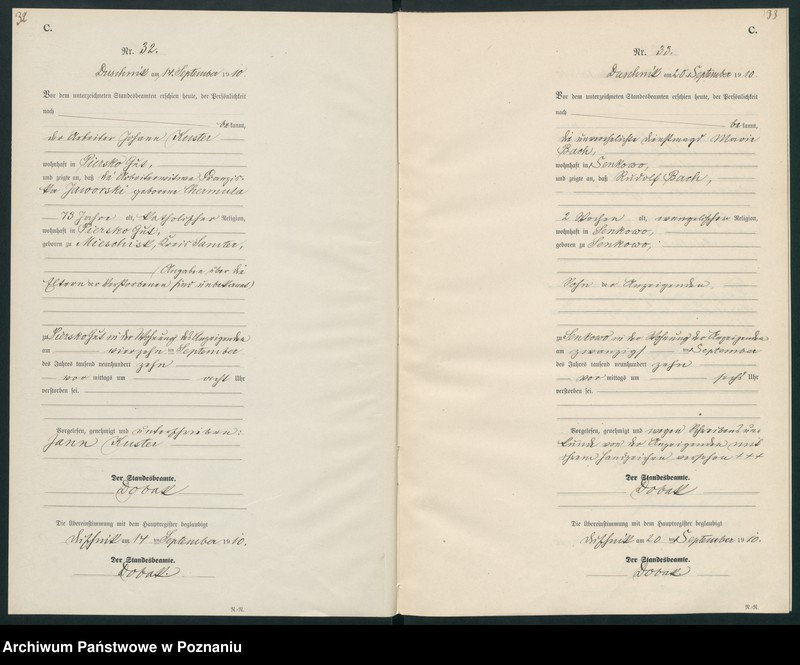 32
C.
Nr. 32.
Duschnik am 14. September 1910.
Vor dem unterzeichneten Standesbeamten erschien heute, der Persönlichkeit
nach
bekannt,
der Arbeiter Johann Kuster
wohnhaft in Piersko Gut,
und zeigte an, daß die Arbeiterwitwe Franzis-
ka Jaworski geborene
75 Jahre alt, katholischer Religion,
wohnhaft in Piersko Gut,
geboren zu Kreis Samter,
(Angaben über die
Eltern der Verstorbenen sind unbekannt)
zu Piersko Gut in der Wohnung des Anzeigenden
am vierzehn ten September
des Jahres tausend neunhundert zehn
vor mittags um acht Uhr
verstorben sei.
Vorgelesen, genehmigt und unterschrieben:
Jann Kuster
Der Standesbeamte.
Dobatt
Die Übereinstimmung mit dem Hauptregister beglaubigt
Duschnik am 14 ten September 1910.
Der Standesbeamte.
Dobatt
R.-R.
33
C.
Nr. 33.
Duschnik am 20 September 1910.
Vor dem unterzeichneten Standesbeamten erschien heute, der Persönlichkeit
nach
bekannt,
die unverehelichte Dienstmagd Marie
Bach,
wohnhaft in Senkowo,
und zeigte an, daß Rudolf Bach,
2 Wochen alt, evangelischer Religion,
wohnhaft in Senkowo,
geboren zu Senkowo,
Sohn der Anzeigenden
zu Senkowo in der Wohnung der Anzeigenden
am zwanzigsten September
des Jahres tausend neunhundert zehn
vor mittags um sechs Uhr
verstorben sei.
Vorgelesen, genehmigt und wegen Schreibensun-
kunde von der Anzeigenden mit
ihrem Handzeichen versehen +++
Der Standesbeamte.
Dobatt
Die Übereinstimmung mit dem Hauptregister beglaubigt
Duschnik am 20 ten September 1910.
Der Standesbeamte.
Dobatt
R.-R.
Archiwum Państwowe w Poznaniu